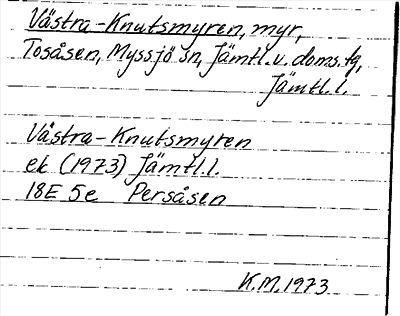 Västra-Knutsmyren, myr,
Tosåsen, Myssjö sn, Jämtl.v. doms.tg,
Jämtl.l.
Västra-Knutsmyren
ek (1973) Jämtl.l.
18E 5e Persåsen
K.M. 1973